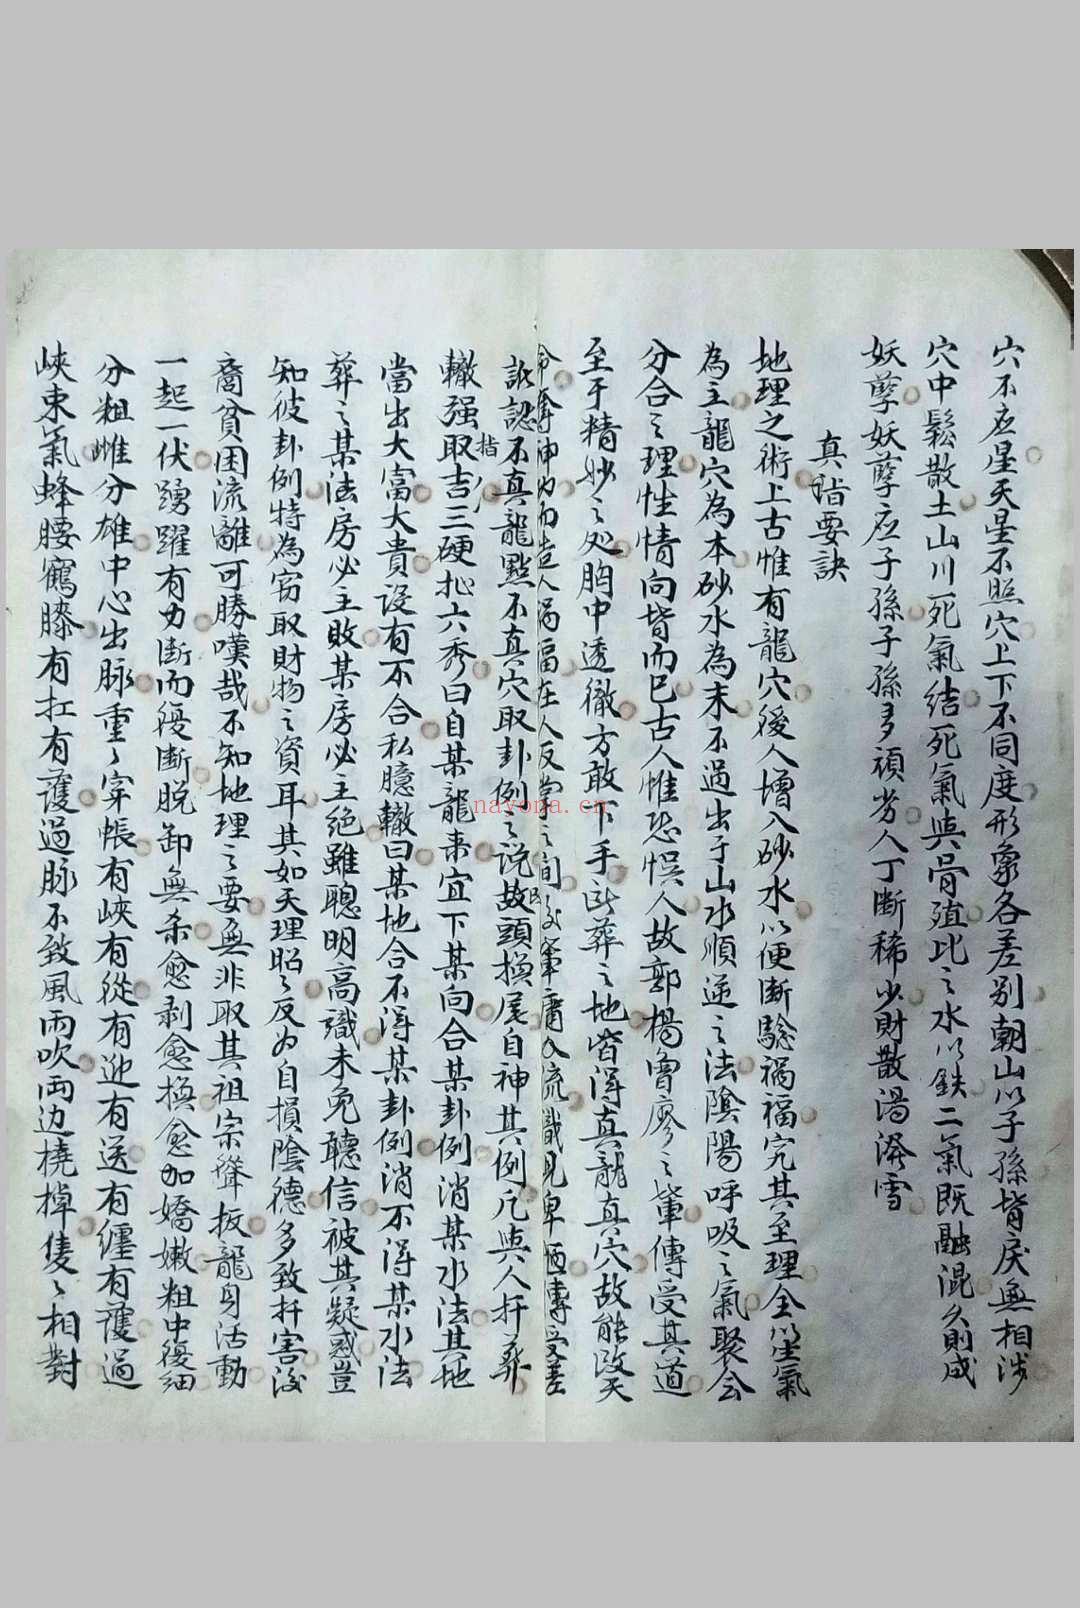 穴不应星天星不照穴上下不同度形象各差别朝山以子孫皆戾無相涉
穴中鬆散土山川死氣結死氣與骨殖比之水以鉄二氣既融混久則成
妖孽妖孽应子孫子孫多頑劣人丁斷稀少財散湯澆雪
真指要訣
地理之術上古惟有龍穴後人增入砂水以便斷驗禍福究其至理全以生氣
為主龍穴為本砂水為末不過出于山水順逆之法陰陽呼吸之氣聚会
分合之理性情向背而已古人惟恐悞人故郭楊曾廖之軰傳受其道
至于精妙之处胸中透徹方敢下手所葬之地皆得真龍真穴故能改天
命奪神功而造人禍福在人反掌之間後軰庸人流識見卑陋傳受差
訛認不真龍點不真穴取卦例之說故頭換尾自神其例凡與人扦葬
轍强取吉三硬扯六秀曰自某龍来宜下某向合某卦例消某水法其地
指
當出大富大貴設有不合私臆轍曰某地合不得某卦例消不得某水法
葬之某法房必主敗某房必主绝雖聰明高識未免聽信被其疑惑豈
知彼卦例特為窃取財物之資耳其如天理昭之反为自損陰德多致扞害後
裔貧困流離可勝嘆哉不知地理之要無非取其祖宗聳拔龍身活動
一起一伏踴躍有力斷而復斷脱卸無杀愈剥愈換愈加嬌嫩粗中復細
分粗雌分雄中心出脉重之穿帳有峽有從有迎有送有纏有護過
峽束氣蜂腰鶴膝有扛有護過脉不致風雨吹两边橈棹隻之相對
nayona.cn